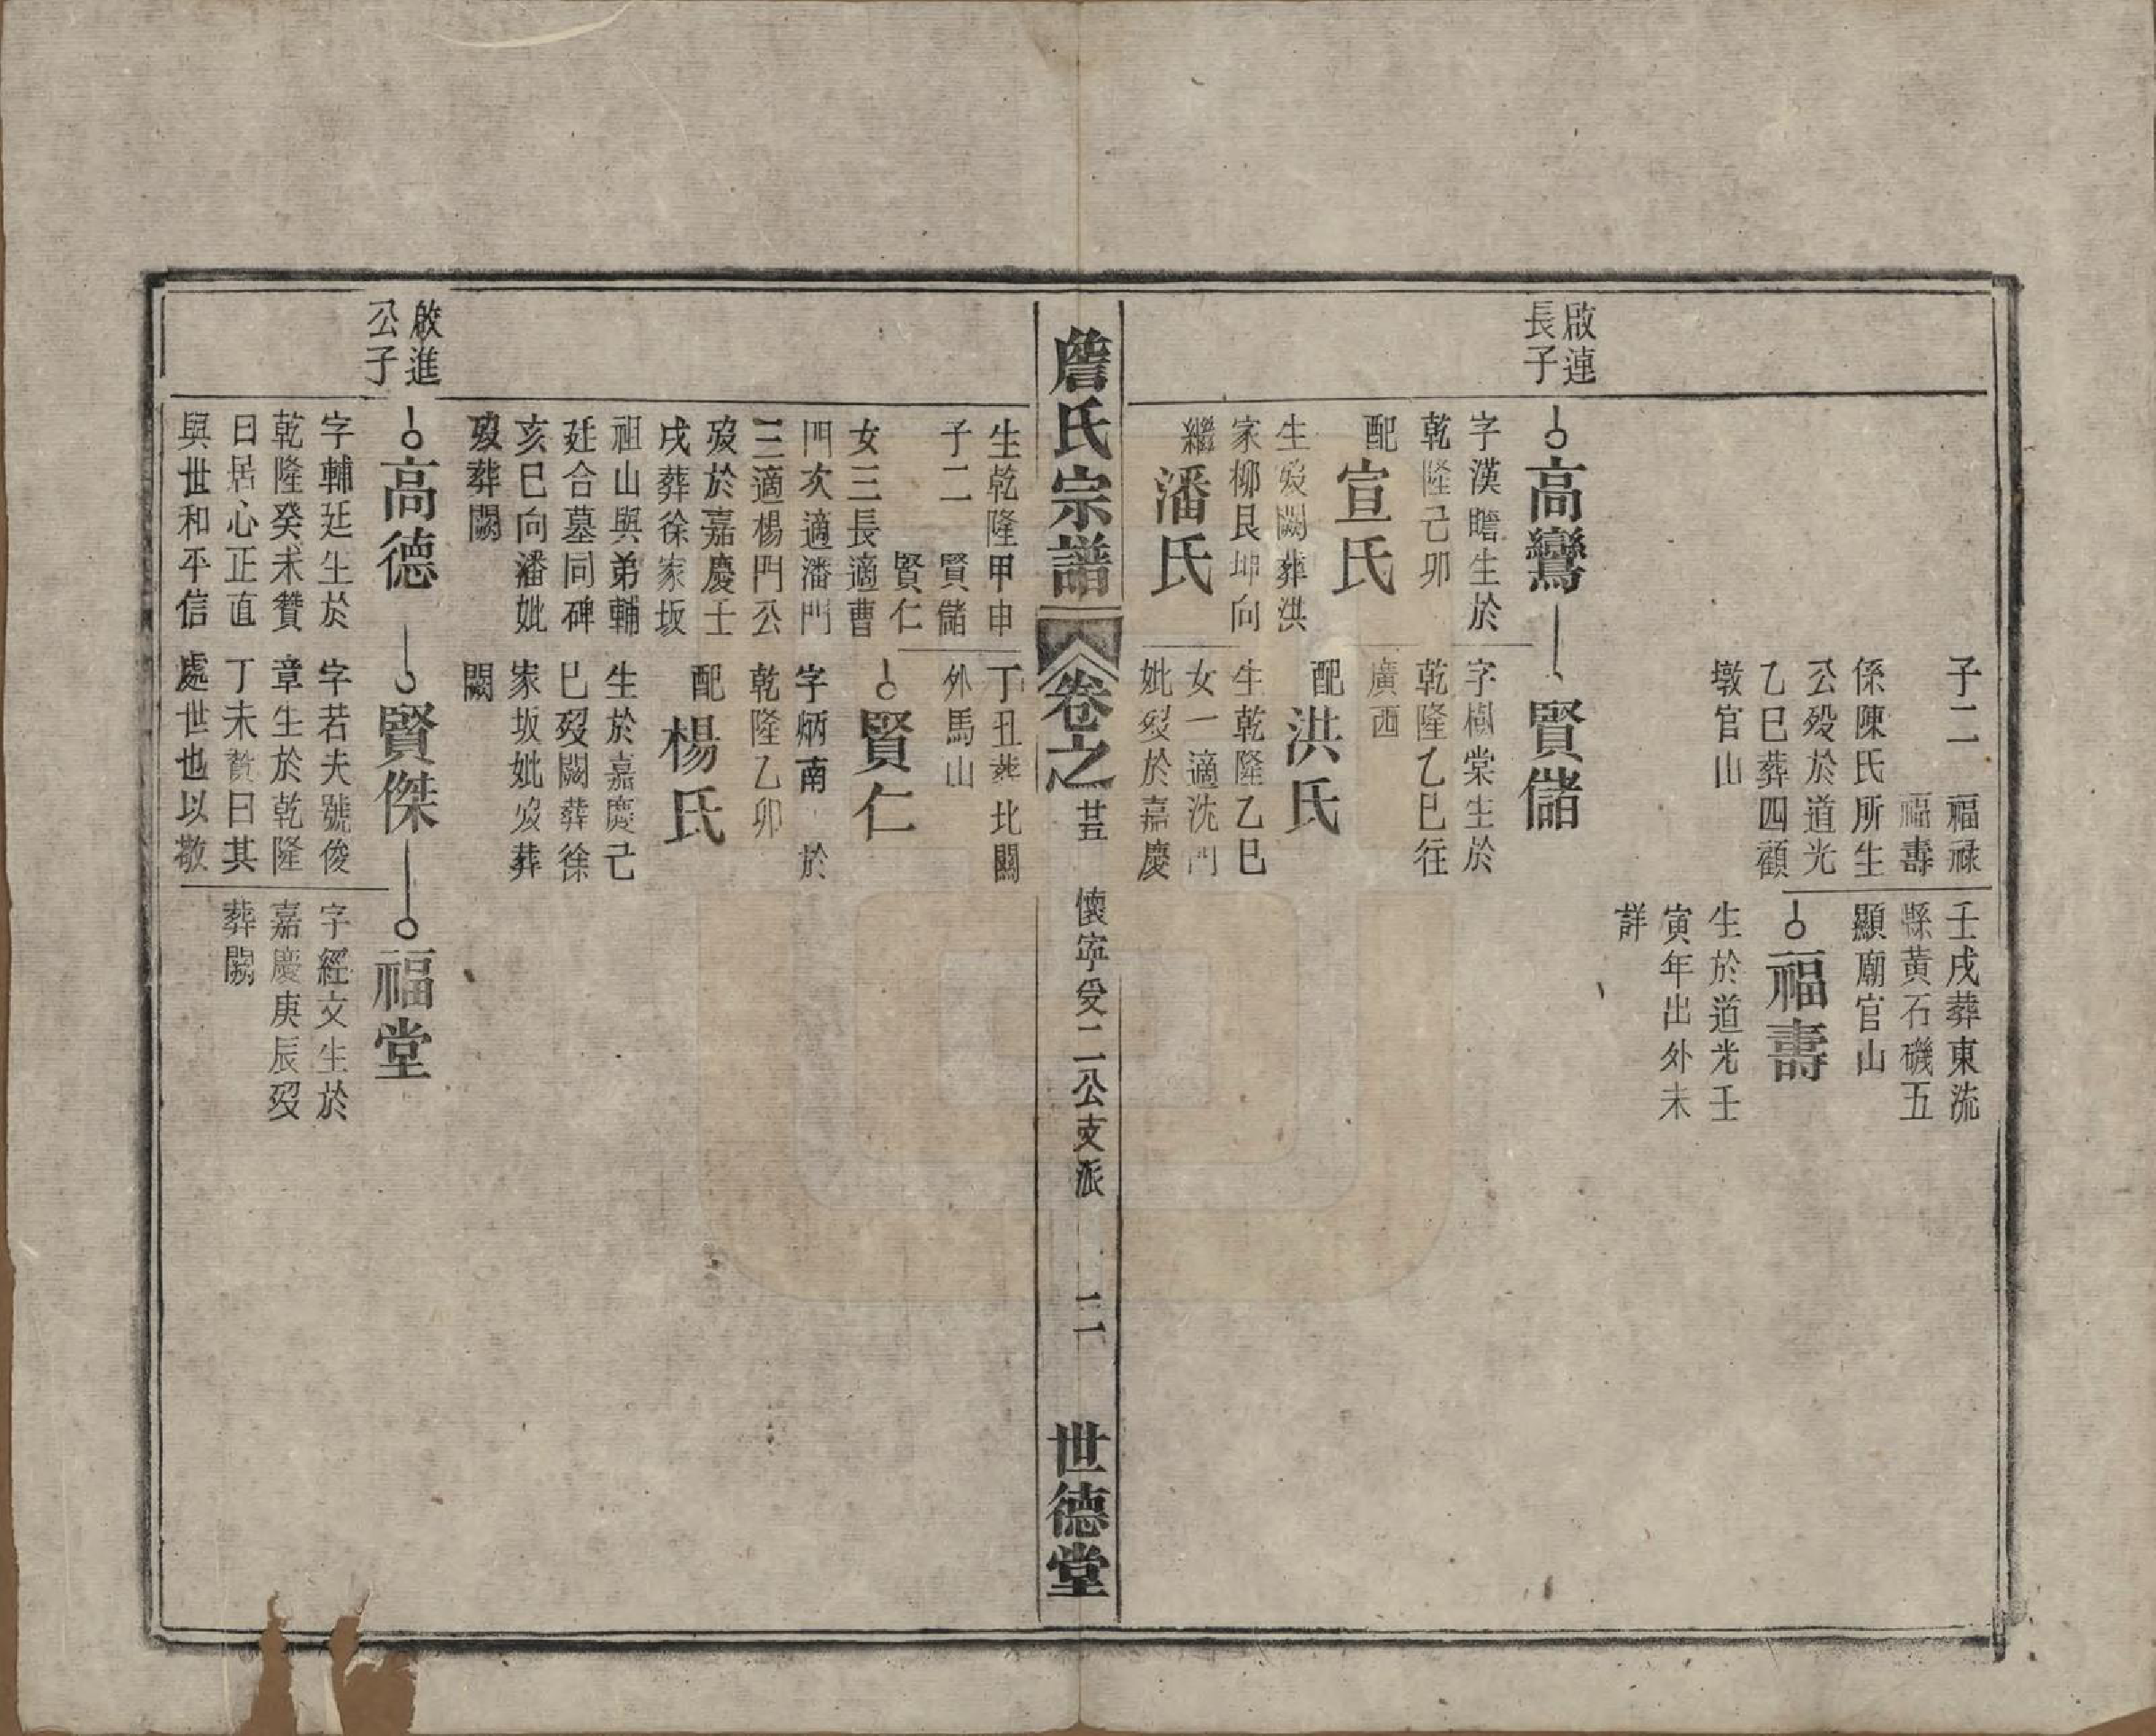 子二 福祿
福壽
係陳氏所生
公殁於道光
乙巳葬四顧
墩官山
壬戌葬東流
縣黃石磯五
顯廟官山
福壽
生於道光壬
寅年出外未
詳
啟連
長子
高鸞
字漢瞻生於
乾隆己卯
配
宣氏
生殁闕葬洪
家柳艮坤向
繼
潘氏
賢儲
字樹棠生於
乾隆乙巳往
廣西
配
洪氏
生乾隆乙巳
女一適沈門
妣殁於嘉慶
詹氏宗譜
卷之
廿五
懷寧受二公支派
二
世德堂
生乾隆甲申
子二 賢儲
賢仁
女三長適曹
門次適潘門
三適楊門公
殁於嘉慶壬
戌葬徐家坂
祖山與弟輔
廷合墓同碑
亥巳向潘妣
殁葬闕
丁丑葬北關
外馬山
賢仁
字炳南 於
乾隆乙卯
配
楊氏
生於嘉慶己
巳殁闕葬徐
家坂妣殁葬
闕
啟進
公子
高德
字輔廷生於
乾隆癸未贊
曰居心正直
與世和平信
賢傑
字若夫號俊
章生於乾隆
丁未贊曰其
處世也以敬
福堂
字經文生於
嘉慶庚辰殁
葬闕